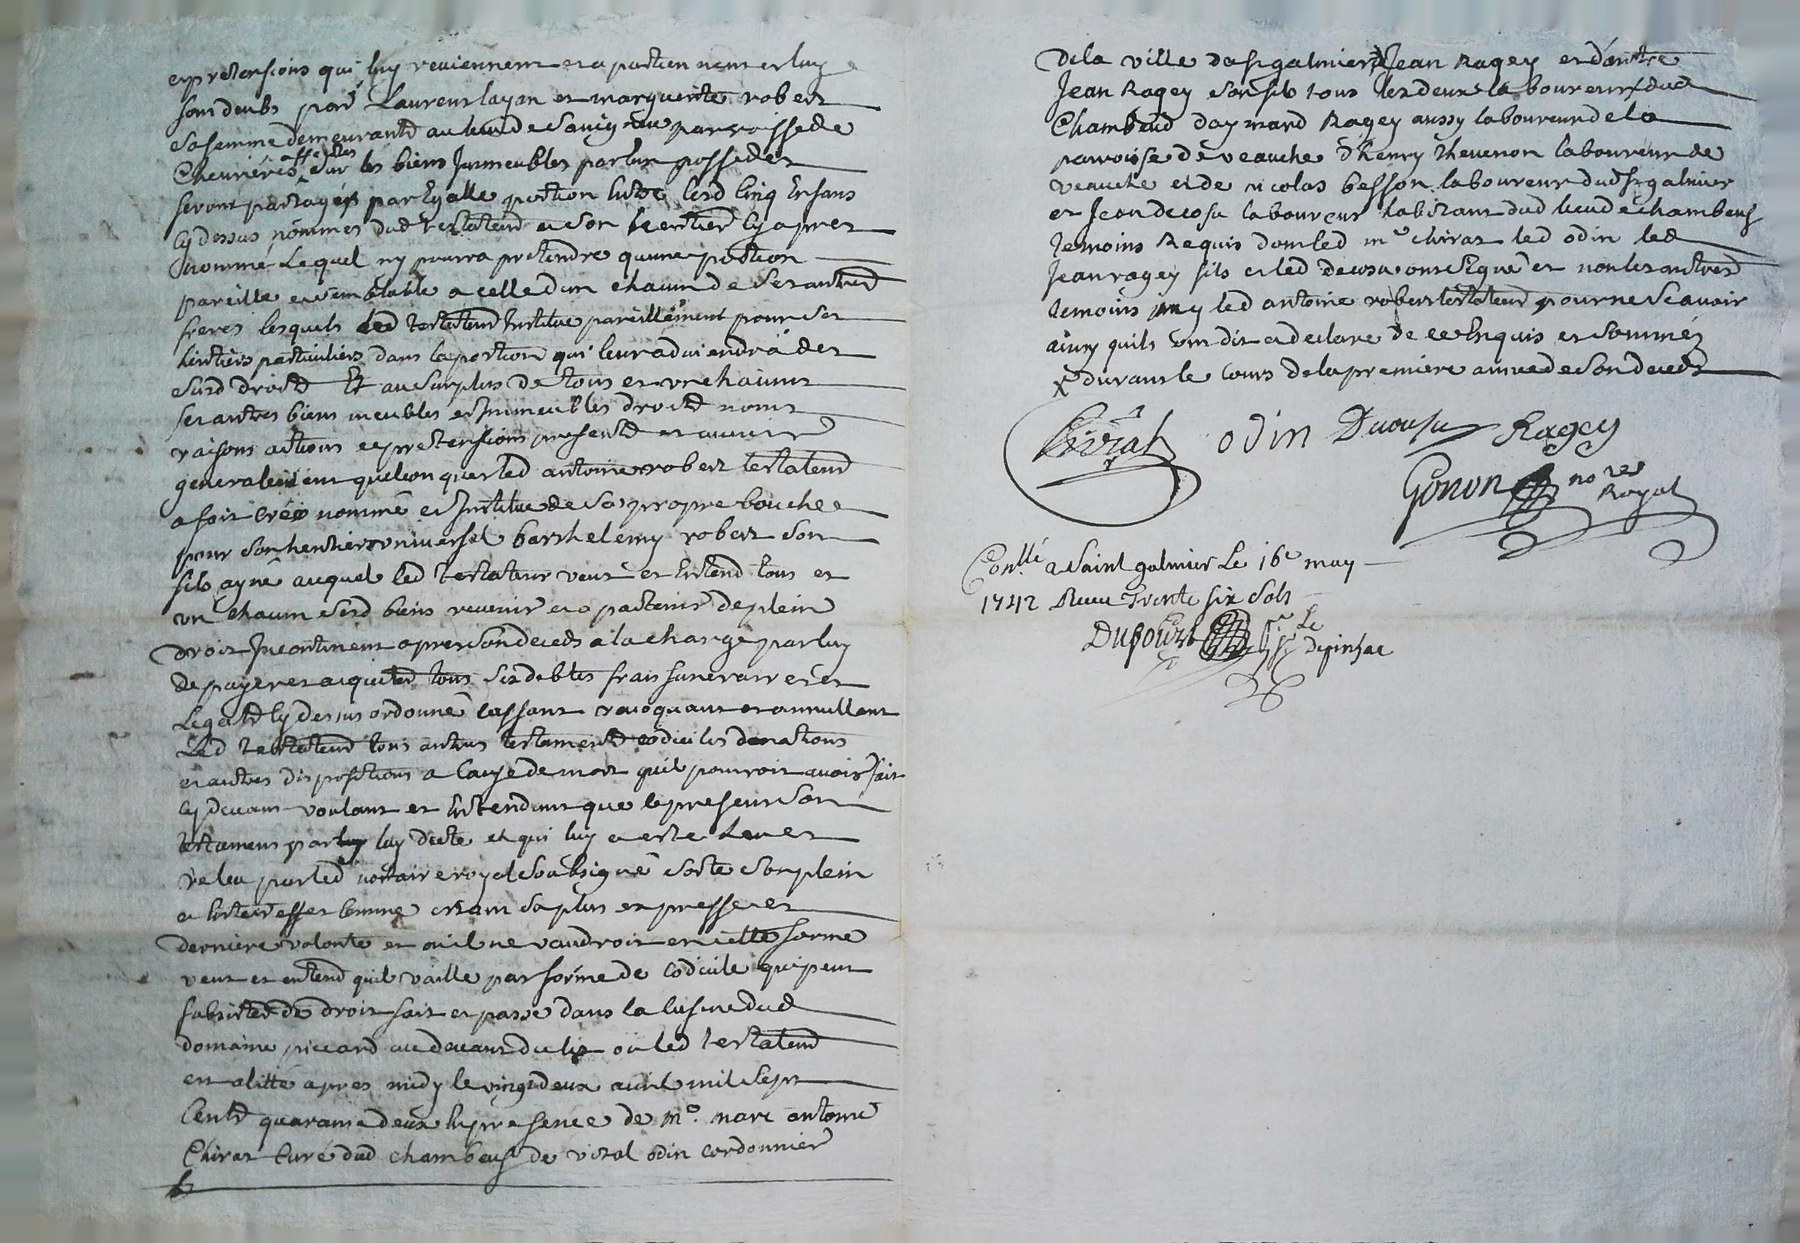 et pretensions qui luy reviennent et apartiennent et luy
sont deubs par Laurent layan et marguerite robert
sa femme demeurantd au lieu de parroisse de
Chevrières affectés sur les biens Immeubles par luy possedes
seront partagés par Egalle portion Entre lesd Cinq Enfans
Cy dessus nommes dud testateur et son heritier Cy apres
nommé Lequel ny pourra pretendre qune portion
pareille et semblable a celle dun chacun de ses autres
freres lesquels led testateur Institue pareillement pour ses
heritiers particuliers dans la portion qui leur adviendra des
susd droitd Et au surplus de tous et un chacuns
ses autres biens meubles et Immeubles droitd noms
raisons actions et pretensions presentd et avenir
generalement quelconques led antoine robert testateur
a fait créé nommé et Institué de sa propre bouche
pour son heritier universel barthelemy robert son
fils ayné auquel led testateur veut et Entend tous et
un chacun sesd biens revenir et apartenir de plein
droit Incontinent apres son deceds a la charge par luy
de payer et acquiter tous ses debtes frais funeraires et
Legatd Cy dessus ordonné cassant revoquant et annullant
Led testateur tous autres testamentd codiciles donations
et autres dispositions a Cause de mort quil pourroit avoir fait
cy devant voulant et Entendant que le present son
testament par luy luy dicté et qui luy a esté Leu et
releu par led notaire royal soubsigné sorte son plein
et Entier effet comme estant sa plus expresse et
derniere volonté et ou il ne vaudroit en cette forme
veut et entend quil vaille par forme de codicile qui peut
subsister de droit fait et passé dans la cuisine dud
domaine piccard au devant du lit ou led testateur
est alitté apres midy le vingt deux avril mil sept
Centd quarante deux En presence de mo. marc antoine
Chirat Curé dud chambeuf de vital odin cordonnier
de la ville de st galmier Jean Ragey et dautre
Jean Ragey son fils tous les deux laboureurs dud
Chambeuf daymard Ragey aussy laboureur de la
parroisse de veauche dhenry thevenon laboureur de
veauche et de nicolas besson laboureur dud st galmier
et Jean decosu laboureur habitant dud lieu de chambeuf
temoins Requis dont led mo chirat led odin led
Jean ragey fils et led decosu ont signé et non les autres
temoins ny led antoine robert testateur pour ne scavoir
ainsy quils ont dit et declaré de ce Enquis et sommés
x durant le cours de la premiere année de son deceds
Chirat odin Ducosu Ragey
Gonon nore
Royal
Conllé a Saint galmier Le 16e may
1742 Receu Trente six sols
Le
Depinhac